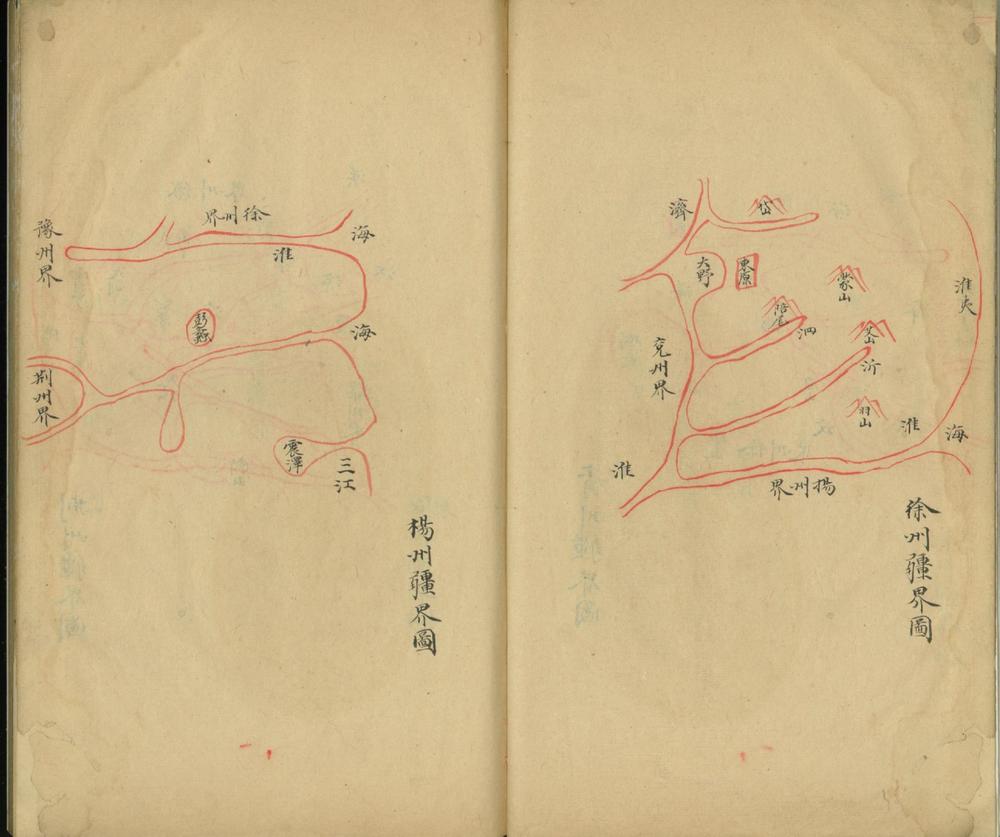 徐州疆界圖
濟
岱
大野
東原
蒙山
淮夷
陪尾
泗
艾山
沂
兗州界
羽山
淮
海
淮
揚州界
楊州疆界圖
徐州界
海
豫州界
淮
彭蠡
海
荆州界
震澤
三江